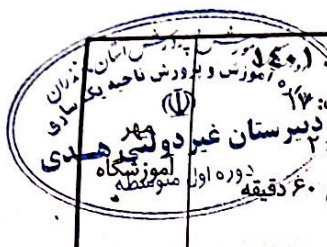 آموزش و پرورش استان مازندران
آموزش و پرورش ناحیه یک ساری
مهر
دبیرستان غیر دولتی هدی
آموزشگاه
دوره اول متوسطه
۱۴۰۱
۱۷
۲
۶۰ دقیقه